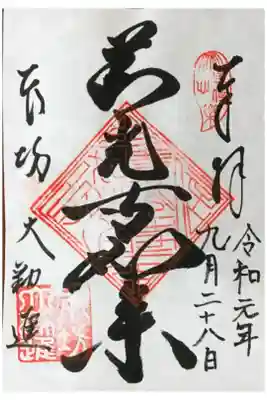 奉拝
令和元年
九月二十八日
善光寺如来
本坊大勧進